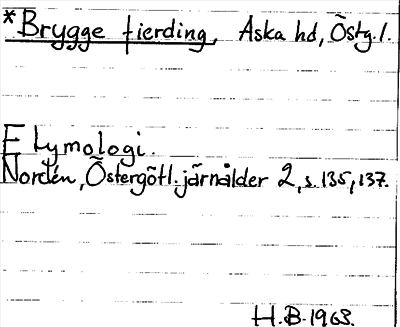 *Brygge fierding, Aska hd, Östg.l.
Etymologi.
Nordén, Östergötl. järnålder 2, s. 135, 137.
H.B. 1963.